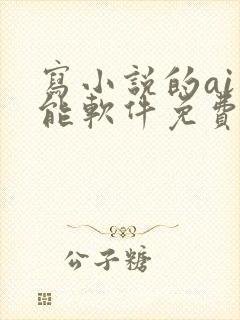 寫小說的ai
能軟件免費
公子糖